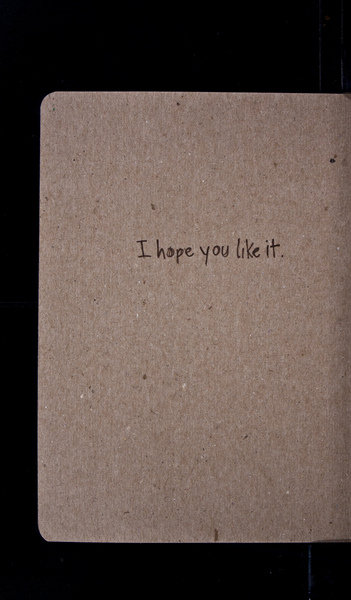 I hope you like it.